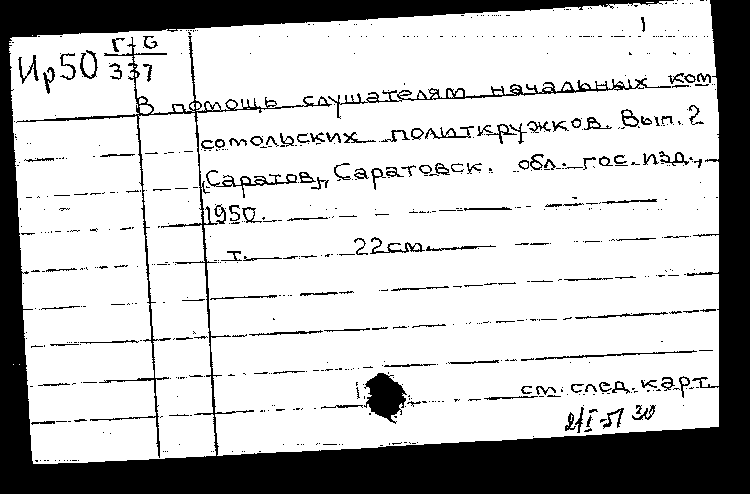 1
Ир50 Г-6
337
В помощь слушателям начальных ком-
сомольских политкружков. Вып. 2
[Саратов], Саратовск. обл. гос. изд.,
1950.
т. 22см.
см. след. карт.